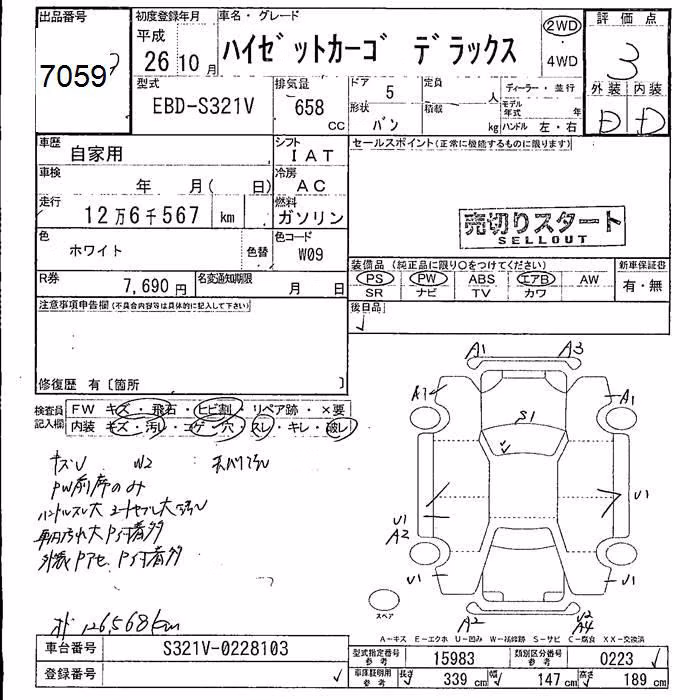 出品番号
7059
初度登録年月
平成
26年 10月
車名・グレード
ハイゼットカーゴ デラックス
2WD
・
4WD
評価点
3
外装 内装
D D
型式
EBD-S321V
排気量
658
cc
ドア
5
形状
バン
定員
人
積載
kg
ディーラー・並行
モデル年式
年
ハンドル 左・右
車歴
自家用
シフト
IAT
車検
年 月( 日)
冷房
AC
走行
12万6千567 km
燃料
ガソリン
色
ホワイト
色替
色コード
W09
R券
7,690円
名変通知期限
月 日
セールスポイント(正常に機能するものに限ります)
売切りスタート
SELLOUT
装備品 (純正品に限り○をつけてください)
PS PW ABS エアB AW
SR ナビ TV カワ
新車保証書
有・無
注意事項申告欄(不具合内容等は具体的に記入して下さい)
後日品
修復歴 有〔箇所 〕
検査員
記入欄
FW キズ・飛石・ヒビ割・リペア跡・×要
内装 キズ・汚レ・コゲ・穴・スレ・キレ・破レ
W2
PW前席のみ
オド 126,568km
A1 A3
A1 A1
S1
U1
U1
A2
U1 U1
A2
U2
A4
スペア
A-キズ E-エクボ U-凹み W-補修跡 S-サビ C-腐食 XX-交換済
車台番号
S321V-0228103
登録番号
型式指定番号
参考
15983
類別区分番号
参考
0223
車庫証明用
参考
長さ 339 cm 幅 147 cm 高さ 189 cm